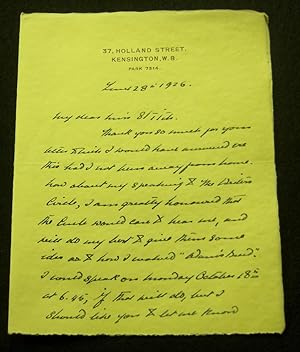 37, HOLLAND STREET,
KENSINGTON, W.8.
PARK 7314.
June 28th 1926.
My dear Miss
Thank you so much for your
letter which I would have answered ere
this had I not been away from home.
Now about my speaking to the Writers
Circle, I am greatly honoured that
the Circle would care to hear me, and
will do my best to give them some
idea as to how I worked "Adam's Breed".
I could speak on Monday October 18th
at 6.45, if that will do, but I
should like you to let me know